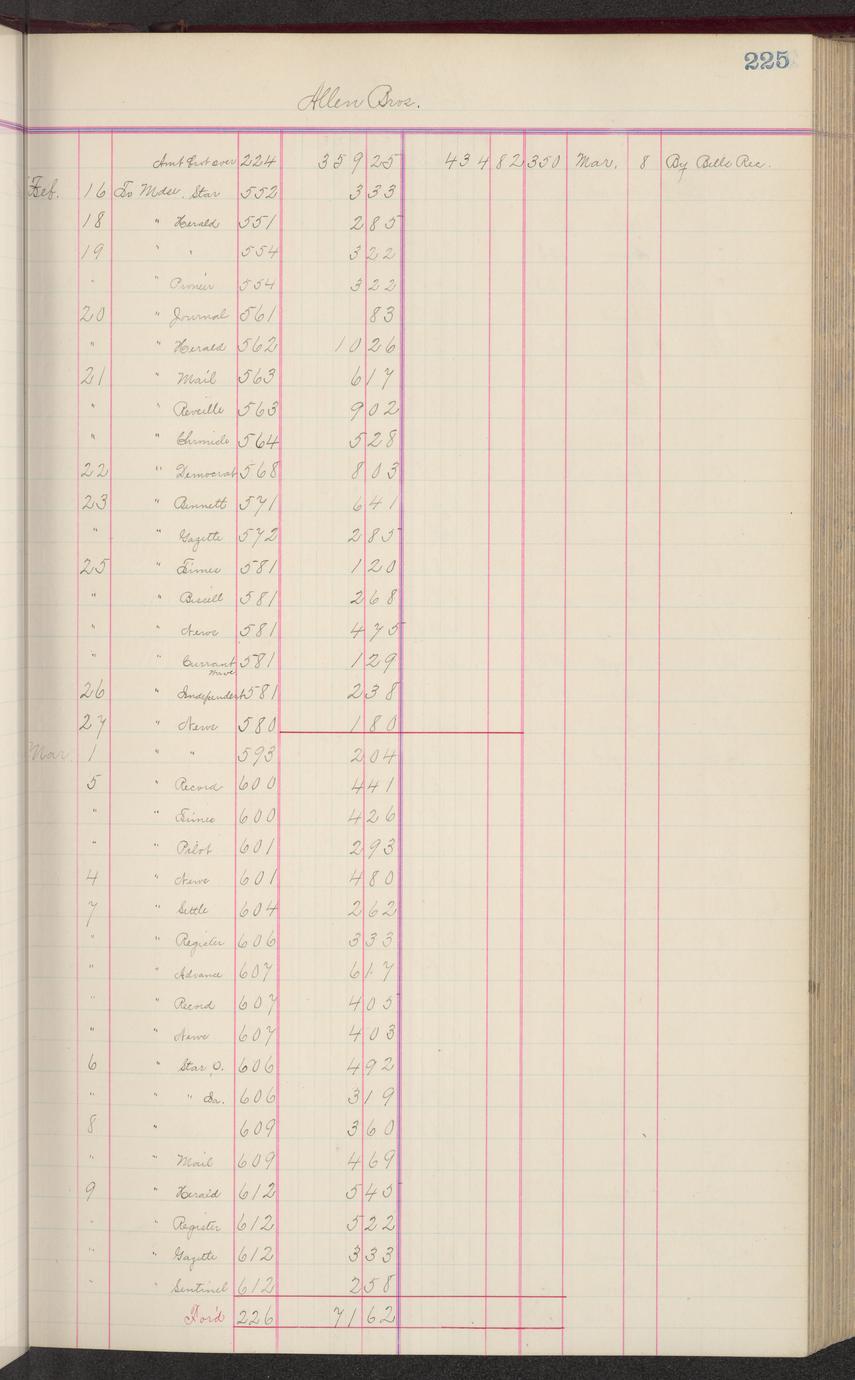 225
Allen Bros.
Amt Brt over 224 359 25 434 82 350 Mar. 8 By Bills Rec.
Feb. 16 To Mdse. Star 552 3 33
18 " Herald 551 2 85
19 " " 554 3 22
" " Pioneer 554 3 22
20 " Journal 561 83
" " Herald 562 10 26
21 " Mail 563 6 17
" " Reveille 563 9 02
" " Chronicle 564 5 28
22 " Democrat 568 8 03
23 " Bennett 571 6 41
" " Gazette 572 2 85
25 " Times 581 1 20
" " 581 2 68
" " News 581 4 75
" " Currant News 581 1 29
26 " Independent 581 2 38
27 " News 580 1 80
Mar. 1 " " 593 2 04
5 " Record 600 4 41
" " Times 600 4 26
" " Pilot 601 2 93
4 " News 601 4 80
7 " Settle 604 2 62
" " Register 606 3 33
" " Advance 607 6 17
" " Record 607 4 05
" " News 607 4 03
6 " Star O. 606 4 92
" " " Ia. 606 3 19
8 " 609 3 60
" " Mail 609 4 69
9 " Herald 612 5 45
" " Register 612 5 22
" " Gazette 612 3 33
" " Sentinel 612 2 58
For'd 226 71 62